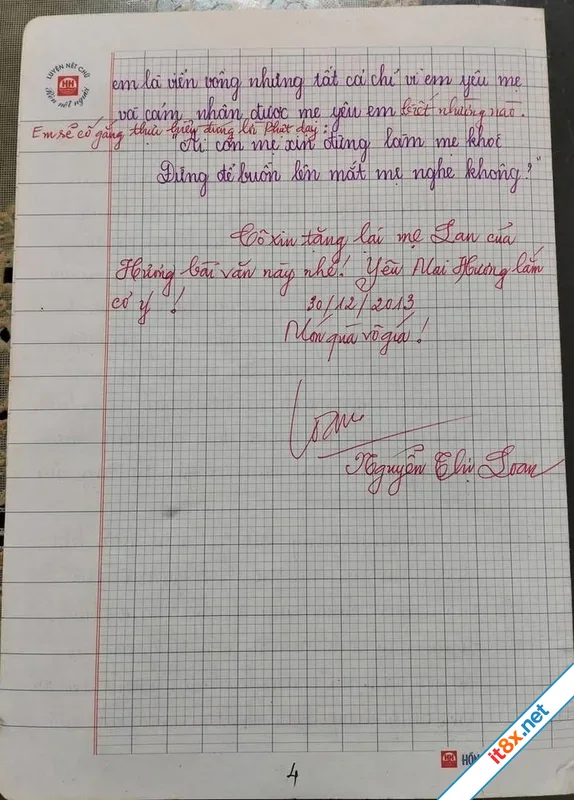 LUYỆN NÉT CHỮ
HH
Rèn nết người
em là viển vông nhưng tất cả chỉ vì em yêu mẹ
và cảm nhận được mẹ yêu em biết nhường nào.
Em sẽ cố gắng thực hiện đúng lời Phật dạy:
"Ai còn mẹ xin đừng làm mẹ khóc
Đừng để buồn lên mắt mẹ nghe không?"
Cô xin tặng lại mẹ Lan của
Hương bài văn này nhé! Yêu Mai Hương lắm
cơ ý !
30/12/2013
Món quà vô giá!
Loan
Nguyễn Thị Loan
HH HỒN
4
it8x.net